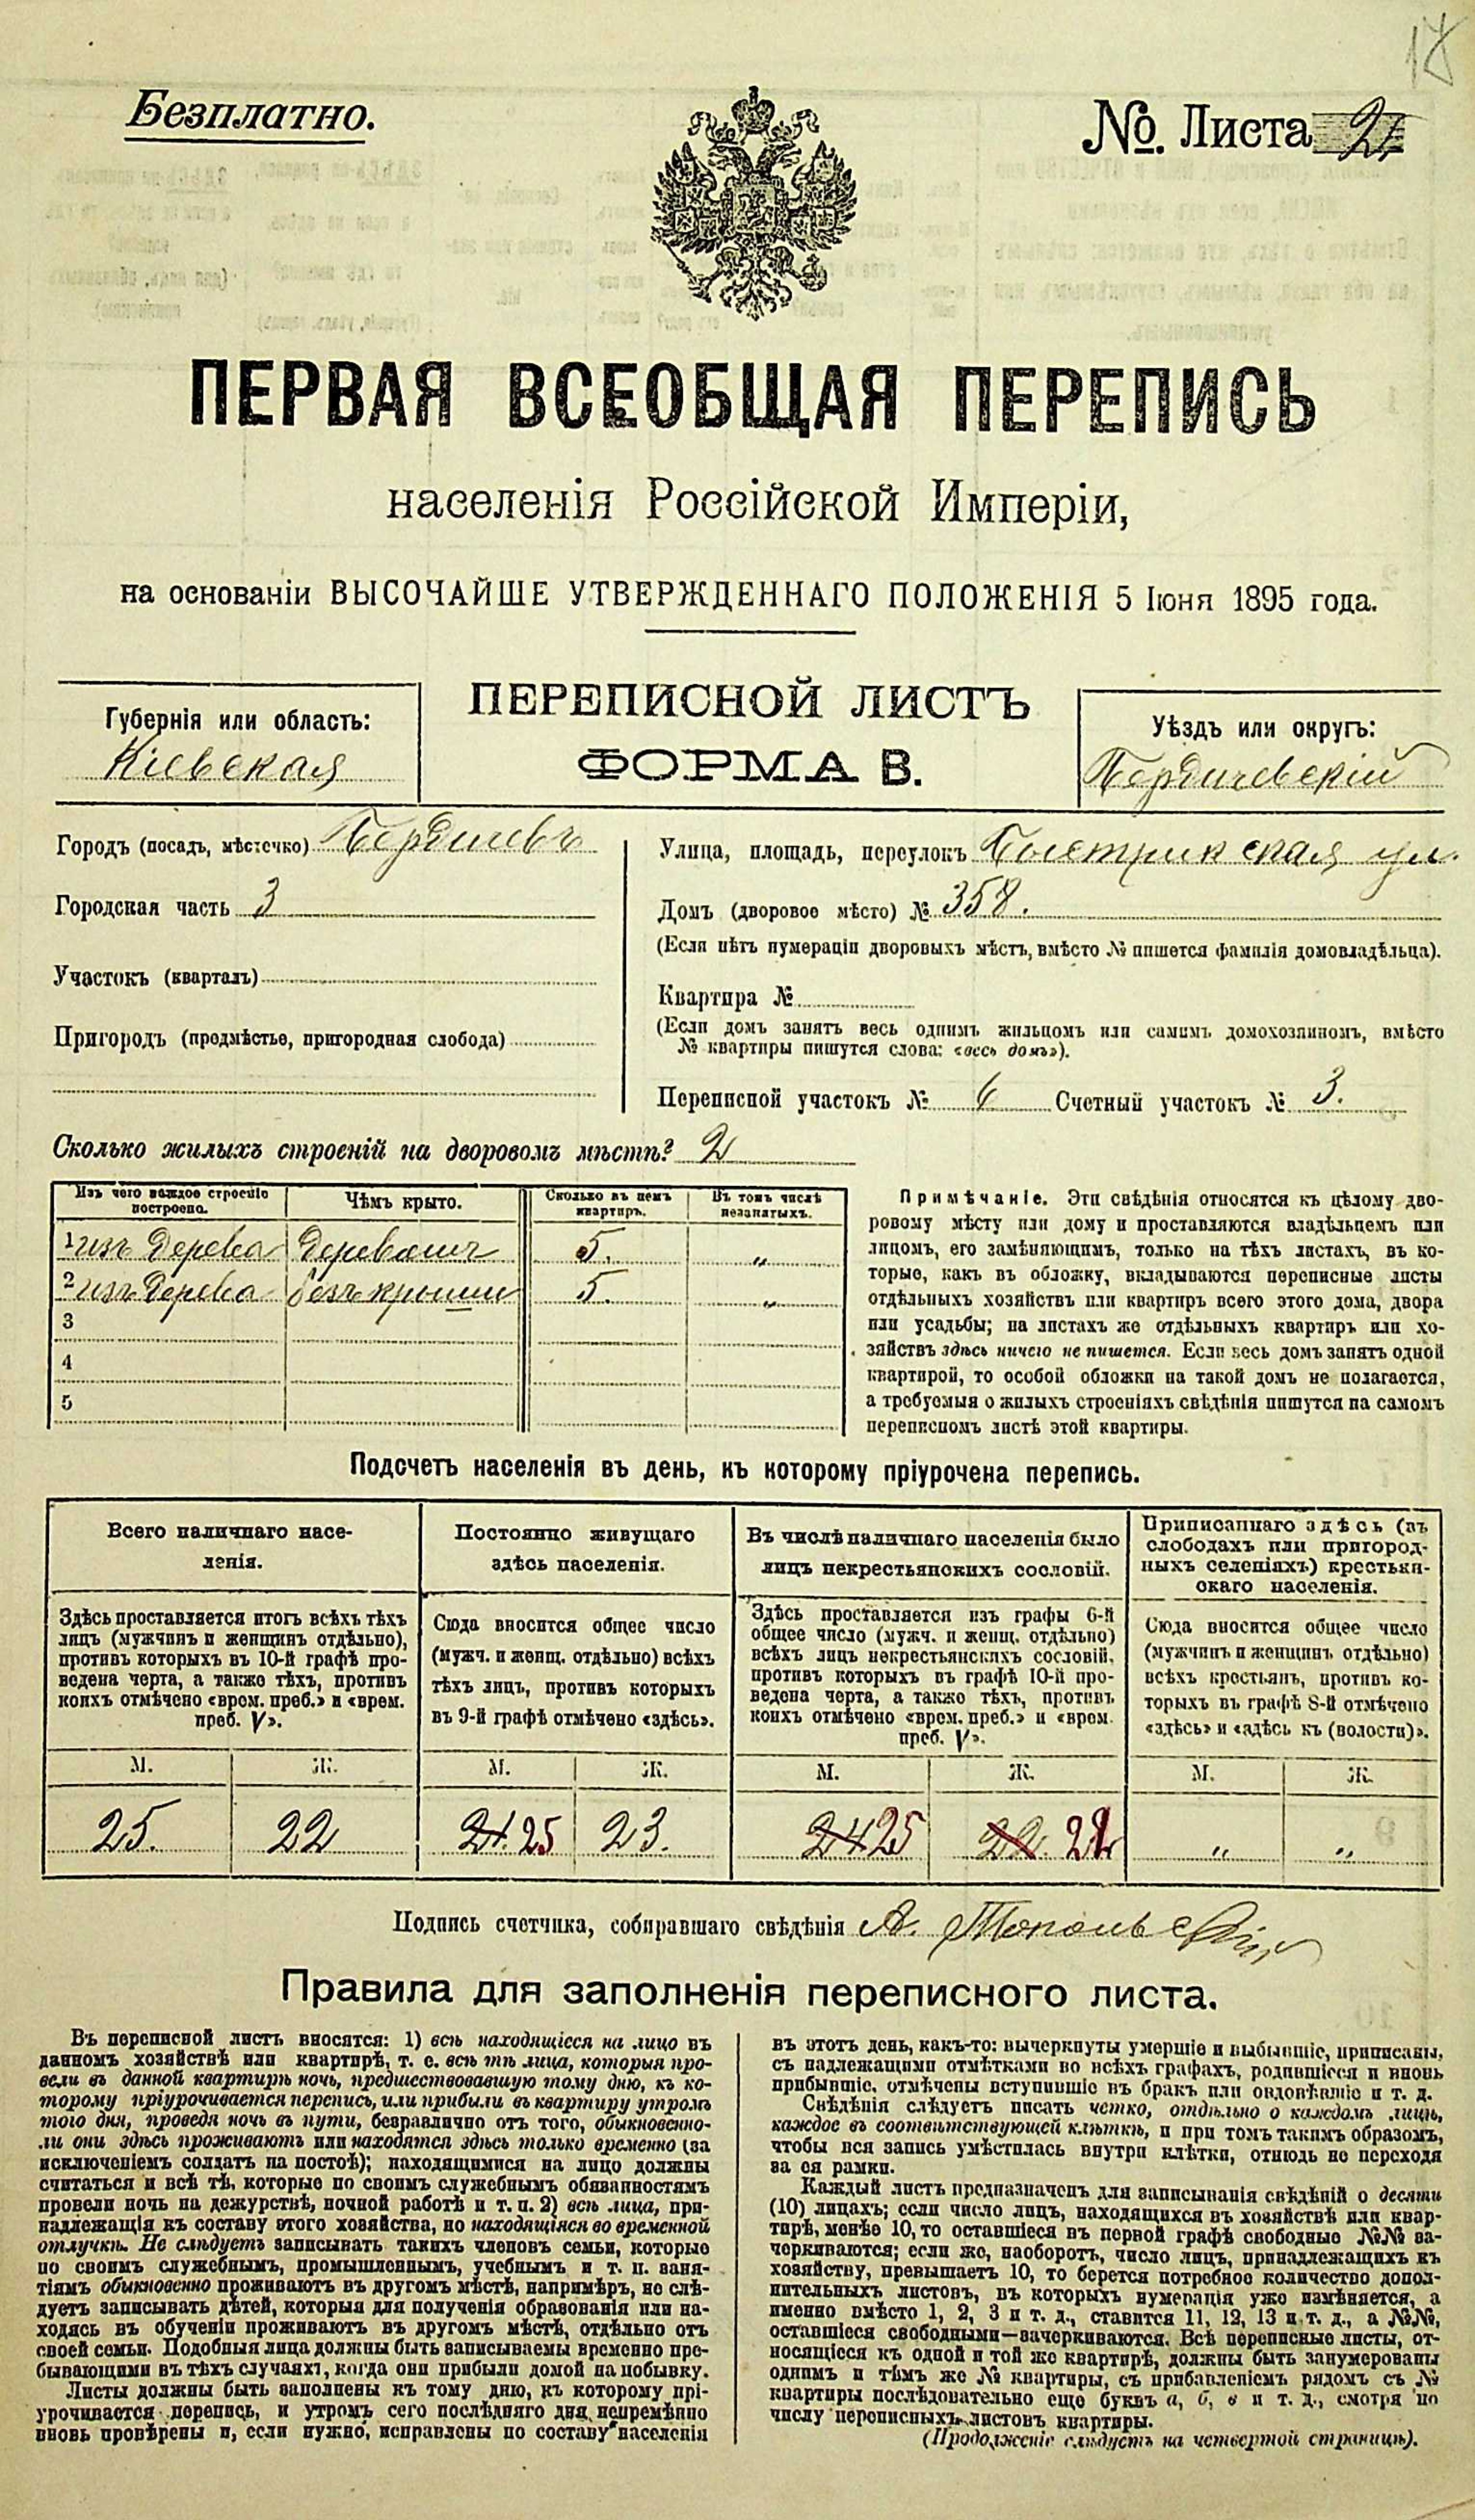 17
Безплатно.
№. Листа 2
ПЕРВАЯ ВСЕОБЩАЯ ПЕРЕПИСЬ
населенія Россійской Имперіи,
на основаніи ВЫСОЧАЙШЕ УТВЕРЖДЕННАГО ПОЛОЖЕНІЯ 5 Іюня 1895 года.
Губернія или область:
Кіевская
ПЕРЕПИСНОЙ ЛИСТЪ
ФОРМА В.
Уѣздъ или округъ:
Бердичевскій
Городъ (посадъ, мѣстечко) Бердичевъ
Городская часть 3
Участокъ (кварталъ)
Пригородъ (предмѣстье, пригородная слобода)
Улица, площадь, переулокъ Быстрикская ул.
Домъ (дворовое мѣсто) № 358.
(Если нѣтъ нумераціи дворовыхъ мѣстъ, вмѣсто № пишется фамилія домовладѣльца).
Квартира №
(Если домъ занятъ весь однимъ жильцомъ или самимъ домохозяиномъ, вмѣсто
№ квартиры пишутся слова: «весь домъ»).
Переписной участокъ № 6 Счетный участокъ № 3.
Сколько жилыхъ строеній на дворовомъ мѣстѣ? 2
Изъ чего каждое строеніе построено. Чѣмъ крыто. Сколько въ немъ квартиръ. Въ томъ числѣ незанятыхъ.
1 изъ дерева деревомъ 5. „
2 изъ дерева безъ крыши 5. „
3
4
5
Примѣчаніе. Эти свѣдѣнія относятся къ цѣлому дво-
ровому мѣсту или дому и проставляются владѣльцемъ или
лицомъ, его замѣняющимъ, только на тѣхъ листахъ, въ ко-
торые, какъ въ обложку, вкладываются переписные листы
отдѣльныхъ хозяйствъ или квартиръ всего этого дома, двора
или усадьбы; на листахъ же отдѣльныхъ квартиръ или хо-
зяйствъ здѣсь ничего не пишется. Если весь домъ занятъ одной
квартирой, то особой обложки на такой домъ не полагается,
а требуемыя о жилыхъ строеніяхъ свѣдѣнія пишутся на самомъ
переписномъ листѣ этой квартиры.
Подсчетъ населенія въ день, къ которому пріурочена перепись.
Всего наличнаго насе-
ленія.
Здѣсь проставляется итогъ всѣхъ тѣхъ
лицъ (мужчинъ и женщинъ отдѣльно),
противъ которыхъ въ 10-й графѣ про-
ведена черта, а также тѣхъ, противъ
коихъ отмѣчено «врем. преб.» и «врем.
преб. V».
М. Ж.
25. 22
Постоянно живущаго
здѣсь населенія.
Сюда вносится общее число
(мужч. и женщ. отдѣльно) всѣхъ
тѣхъ лицъ, противъ которыхъ
въ 9-й графѣ отмѣчено «здѣсь».
М. Ж.
24. 25 23.
Въ числѣ наличнаго населенія было
лицъ некрестьянскихъ сословій.
Здѣсь проставляется изъ графы 6-й
общее число (мужч. и женщ. отдѣльно)
всѣхъ лицъ некрестьянскихъ сословій,
противъ которыхъ въ графѣ 10-й про-
ведена черта, а также тѣхъ, противъ
коихъ отмѣчено «врем. преб.» и «врем.
преб. V».
М. Ж.
24 25 22. 22
Приписаннаго здѣсь (въ
слободахъ или пригород-
ныхъ селеніяхъ) крестьян-
скаго населенія.
Сюда вносится общее число
(мужчинъ и женщинъ отдѣльно)
всѣхъ крестьянъ, противъ ко-
торыхъ въ графѣ 8-й отмѣчено
«здѣсь» и «здѣсь къ (волости)».
М. Ж.
„ „
Подпись счетчика, собиравшаго свѣдѣнія А. Топольскій
Правила для заполненія переписного листа.
Въ переписной листъ вносятся: 1) всѣ находящіеся на лицо въ
данномъ хозяйствѣ или квартирѣ, т. е. всѣ тѣ лица, которыя про-
вели въ данной квартирѣ ночь, предшествовавшую тому дню, къ ко-
торому пріурочивается перепись, или прибыли въ квартиру утромъ
того дня, проведя ночь въ пути, безразлично отъ того, обыкновенно-
ли они здѣсь проживаютъ или находятся здѣсь только временно (за
исключеніемъ солдатъ на постоѣ); находящимися на лицо должны
считаться и всѣ тѣ, которые по своимъ служебнымъ обязанностямъ
провели ночь на дежурствѣ, ночной работѣ и т. п. 2) всѣ лица, при-
надлежащія къ составу этого хозяйства, но находящіяся во временной
отлучкѣ. Не слѣдуетъ записывать такихъ членовъ семьи, которые
по своимъ служебнымъ, промышленнымъ, учебнымъ и т. п. заня-
тіямъ обыкновенно проживаютъ въ другомъ мѣстѣ, напримѣръ, не слѣ-
дуетъ записывать дѣтей, которыя для полученія образованія или на-
ходясь въ обученіи проживаютъ въ другомъ мѣстѣ, отдѣльно отъ
своей семьи. Подобныя лица должны быть записываемы временно пре-
бывающими въ тѣхъ случаяхъ, когда они прибыли домой на побывку.
Листы должны быть заполнены къ тому дню, къ которому прі-
урочивается перепись, и утромъ сего послѣдняго дня непремѣнно
вновь провѣрены и, если нужно, исправлены по составу населенія
въ этотъ день, какъ-то: вычеркнуты умершіе и выбывшіе, приписаны,
съ надлежащими отмѣтками во всѣхъ графахъ, родившіеся и вновь
прибывшіе, отмѣчены вступившіе въ бракъ или овдовѣвшіе и т. д.
Свѣдѣнія слѣдуетъ писать четко, отдѣльно о каждомъ лицѣ,
каждое въ соотвѣтствующей клѣткѣ, и при томъ такимъ образомъ,
чтобы вся запись умѣстилась внутри клѣтки, отнюдь не переходя
за ея рамки.
Каждый листъ предназначенъ для записыванія свѣдѣній о десяти
(10) лицахъ; если число лицъ, находящихся въ хозяйствѣ или квар-
тирѣ, менѣе 10, то оставшіеся въ первой графѣ свободные №№ за-
черкиваются; если же, наоборотъ, число лицъ, принадлежащихъ къ
хозяйству, превышаетъ 10, то берется потребное количество допол-
нительныхъ листовъ, въ которыхъ нумерація уже измѣняется, а
именно вмѣсто 1, 2, 3 и т. д., ставится 11, 12, 13 и т. д., а №№,
оставшіеся свободными—зачеркиваются. Всѣ переписные листы, от-
носящіеся къ одной и той же квартирѣ, должны быть занумерованы
однимъ и тѣмъ же № квартиры, съ прибавленіемъ рядомъ съ №
квартиры послѣдовательно еще буквъ а, б, в и т. д., смотря по
числу переписныхъ листовъ квартиры.
(Продолженіе слѣдуетъ на четвертой страницѣ).